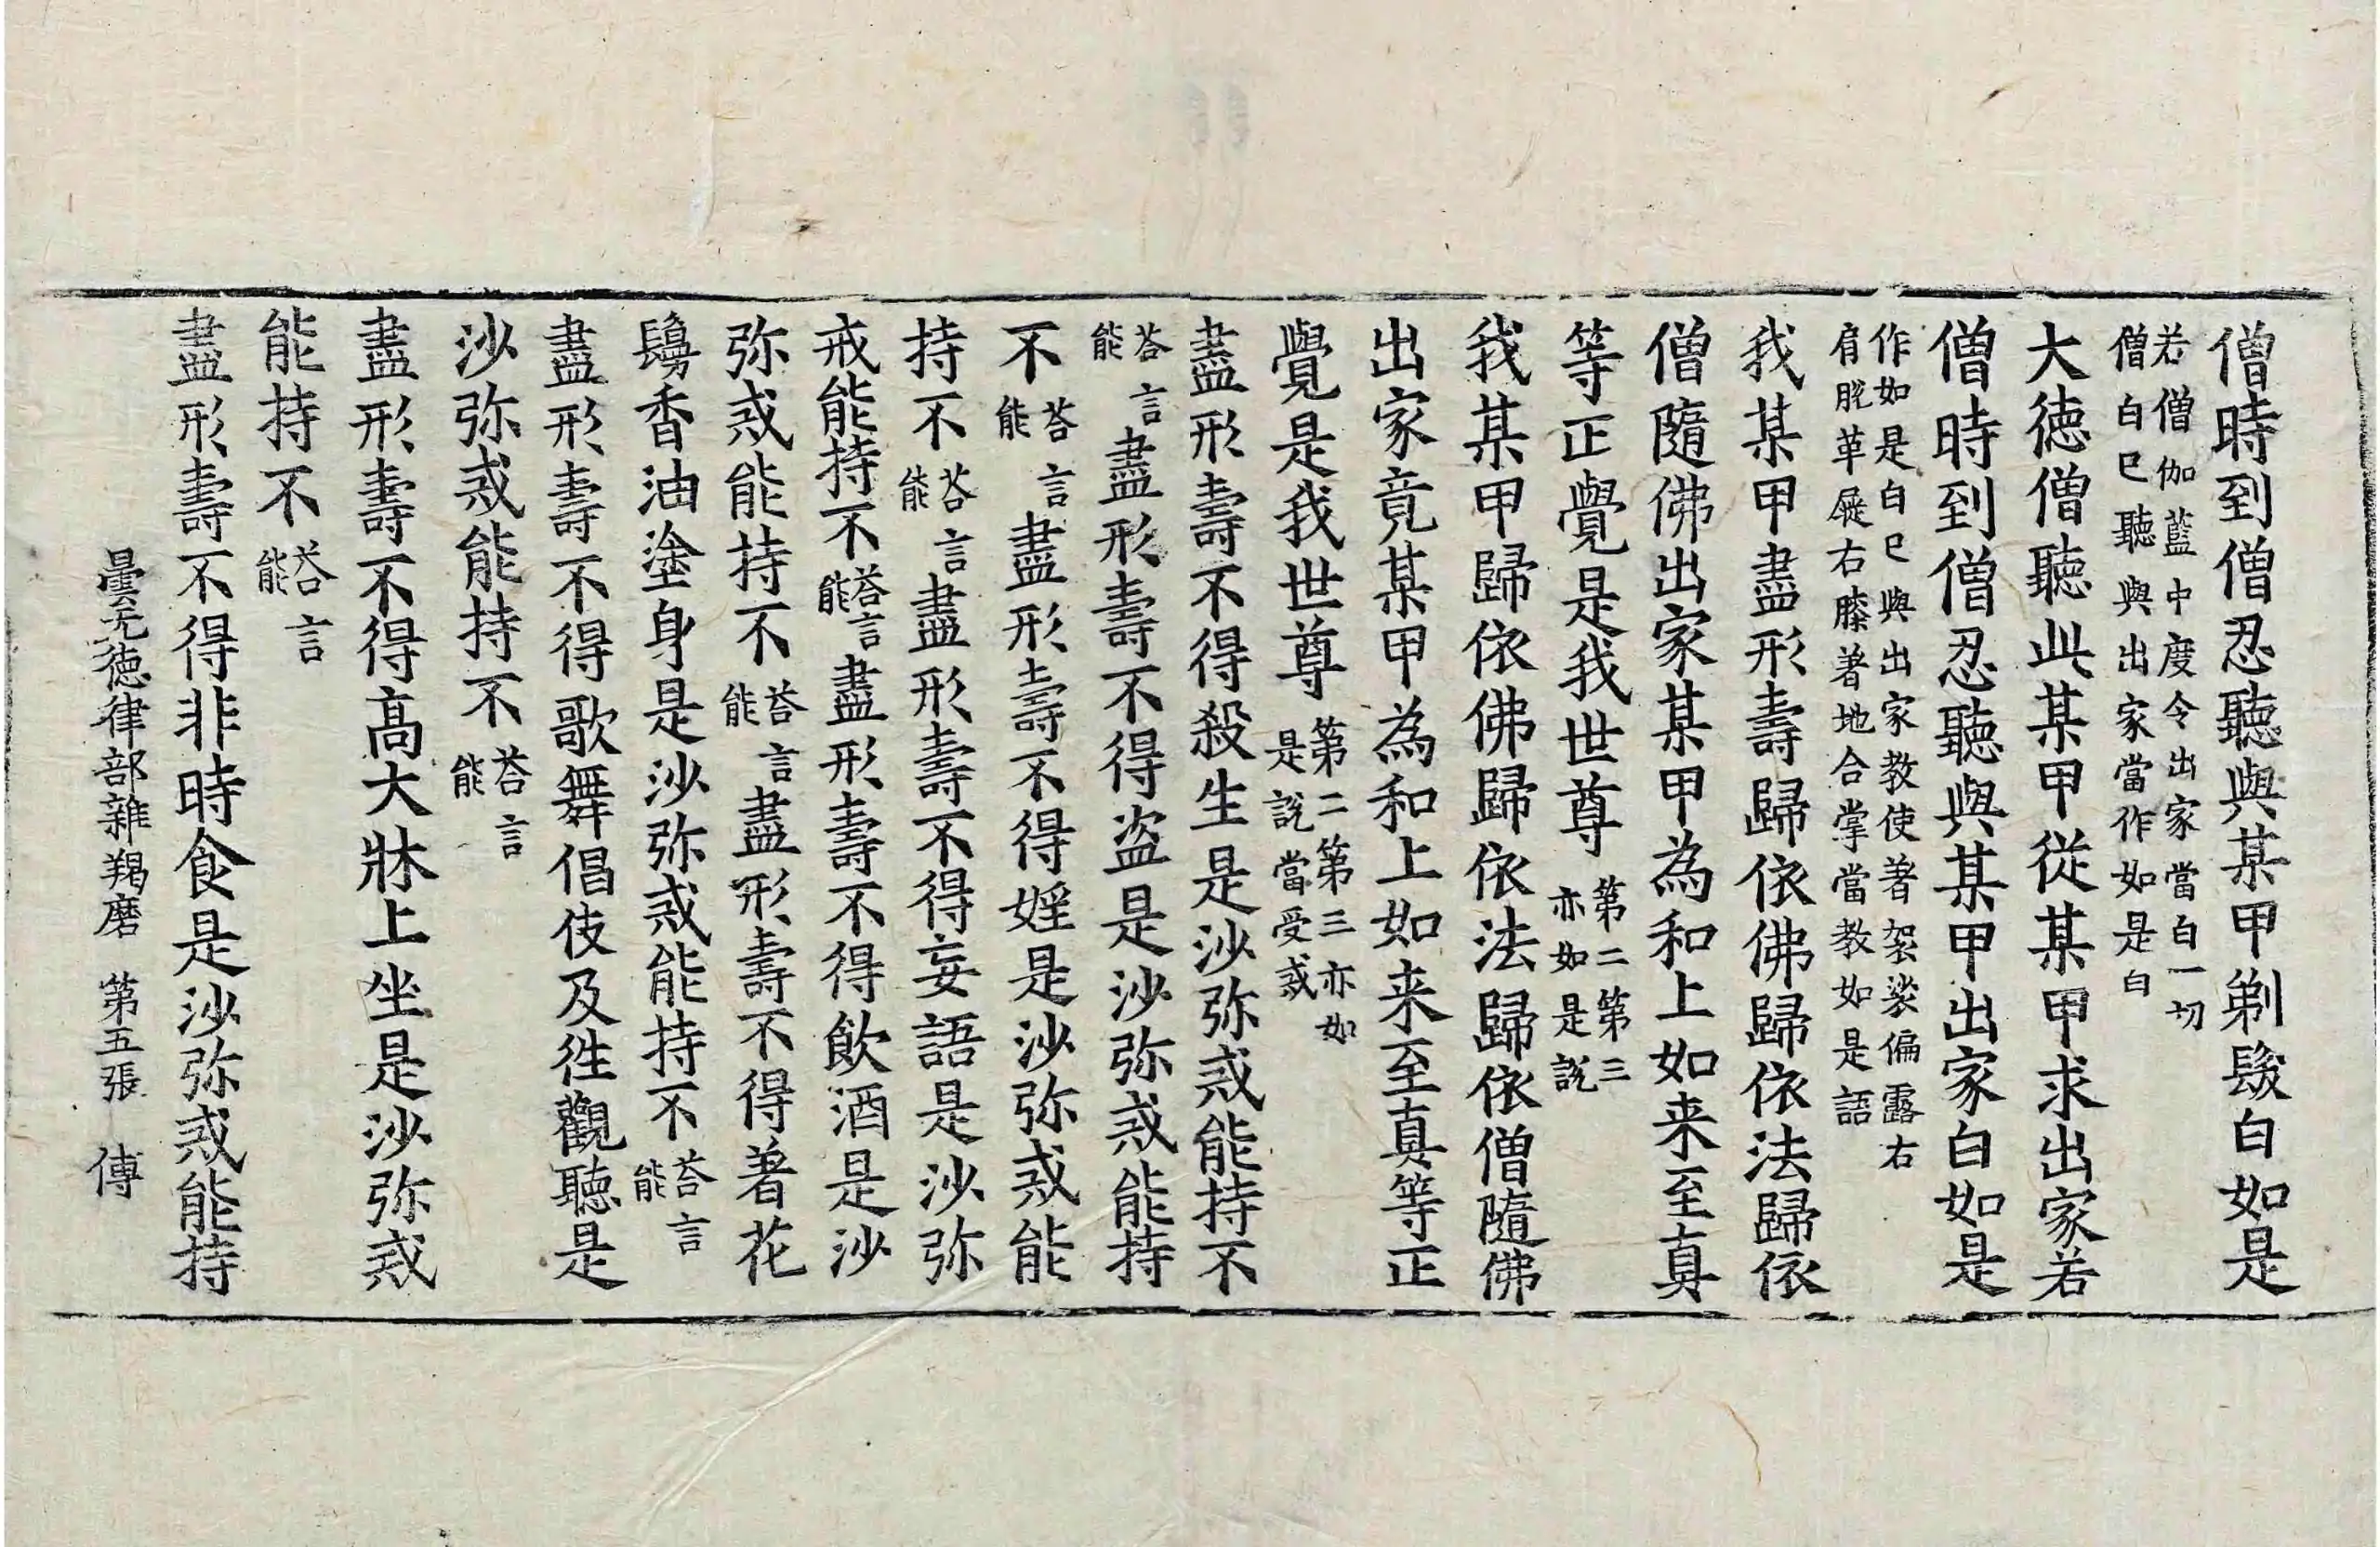 僧時到僧忍聽與某甲剃髮白如是
若僧伽藍中度令出家當白一切
僧白已聽與出家當作如是白
大徳僧聽此某甲從某甲求出家若
僧時到僧忍聽與某甲出家白如是
作如是白已與出家教使著袈裟偏露右
肩脫革屣右膝著地合掌當教如是語
我某甲盡形壽歸依佛歸依法歸依
僧隨佛出家某甲為和上如来至真
等正覺是我世尊第二第三
亦如是說
我某甲歸依佛歸依法歸依僧隨佛
出家竟某甲為和上如来至真等正
覺是我世尊第二第三亦如
是說當受戒
盡形壽不得殺生是沙弥戒能持不
荅言
能
盡形壽不得盗是沙弥戒能持
不荅言
能
盡形壽不得婬是沙弥戒能
持不荅言
能
盡形壽不得妄語是沙弥
戒能持不荅言
能
盡形壽不得飲酒是沙
弥戒能持不荅言
能
盡形壽不得著花
鬘香油塗身是沙弥戒能持不荅言
能
盡形壽不得歌舞倡伎及徃觀聽是
沙弥戒能持不荅言
能
盡形壽不得高大牀上坐是沙弥戒
能持不荅言
能
盡形壽不得非時食是沙弥戒能持
曇无徳律部雜羯磨 第五張 傳